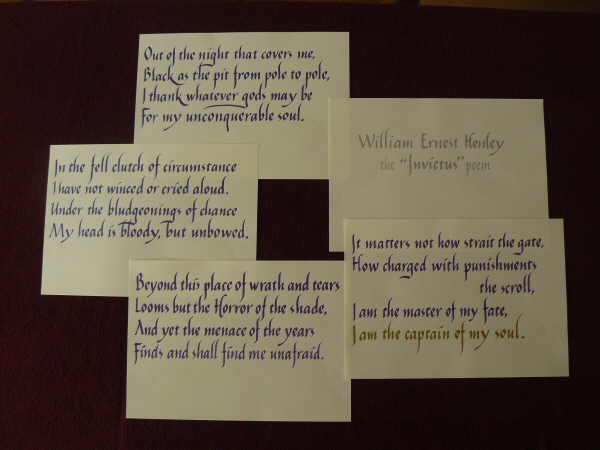 Out of the night that covers me,
Black as the pit from pole to pole,
I thank whatever gods may be
For my unconquerable soul.
William Ernest Henley
the "Invictus" poem
In the fell clutch of circumstance
I have not winced or cried aloud.
Under the bludgeonings of chance
My head is bloody, but unbowed.
Beyond this place of wrath and tears
Looms but the Horror of the shade,
And yet the menace of the years
Finds and shall find me unafraid.
It matters not how strait the gate,
How charged with punishments
the scroll,
I am the master of my fate,
I am the captain of my soul.